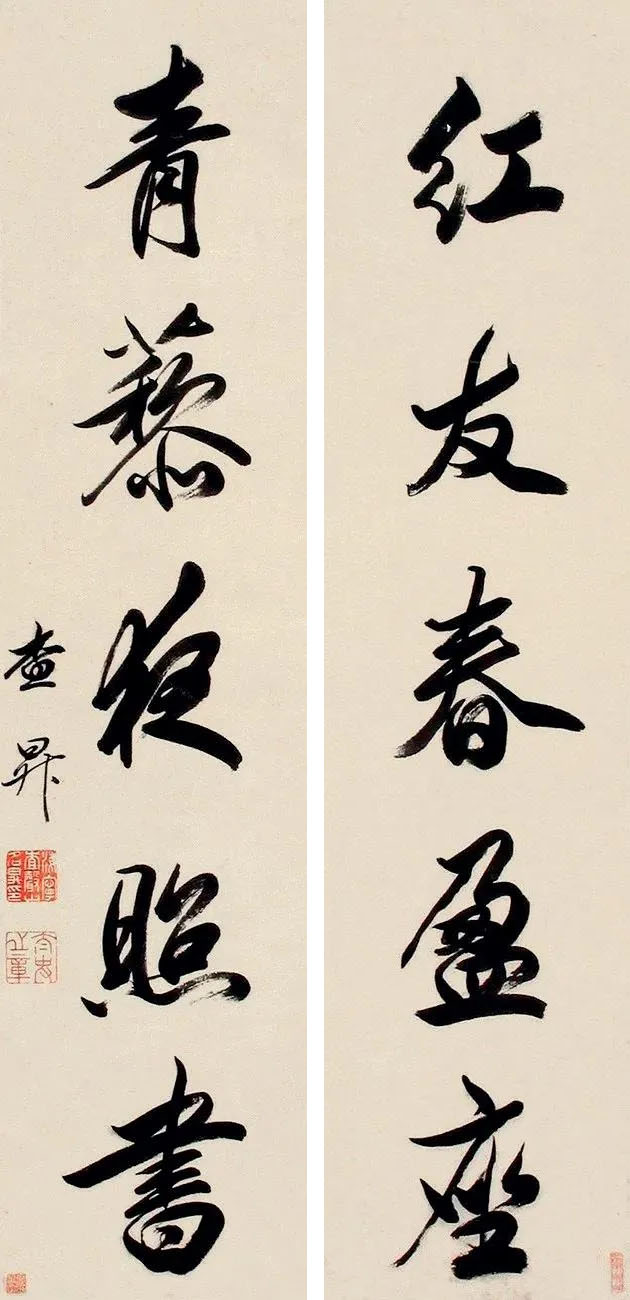 红友春盈座
青藜夜照書
查昇